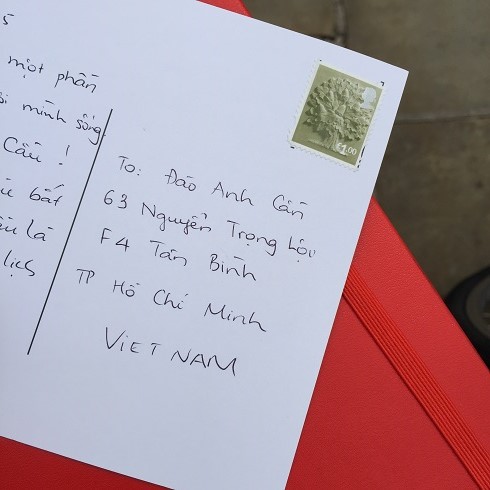 5
một phần
mình sống
Cấu !
bất
là
lịch
£1.00
To: Đào Anh Cần
63 Nguyễn Trọng Lội
F4 Tân Bình
TP Hồ Chí Minh
VIET NAM